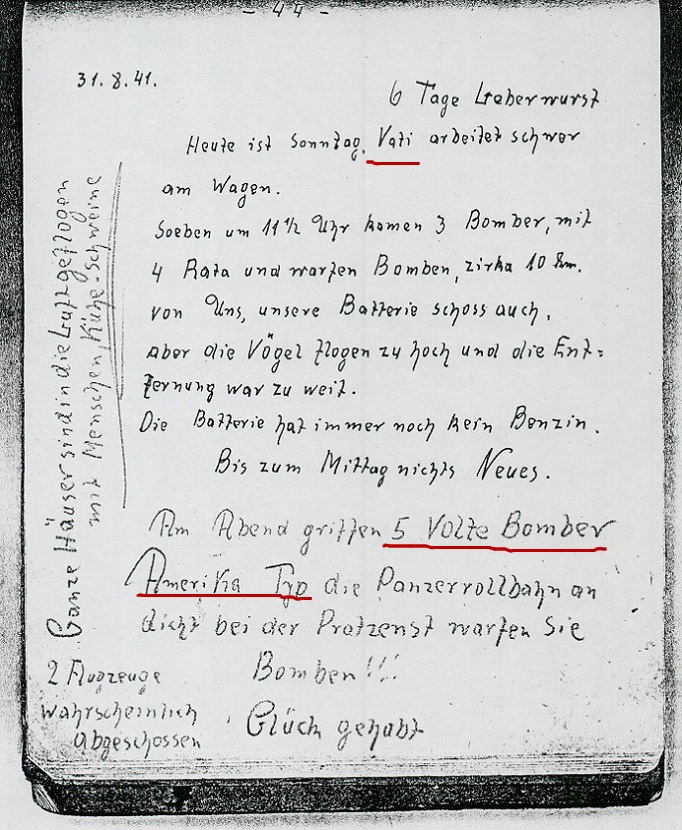 - 44 -
31.8.41.
6 Tage Leberwurst
Heute ist Sonntag, Vati arbeitet schwer
am Wagen.
Soeben um 11 1/2 Uhr kamen 3 Bomber, mit
4 Rata und warfen Bomben, zirka 10 Km.
von Uns, unsere Batterie schoss auch,
aber die Vögel flogen zu hoch und die Ent=
fernung war zu weit.
Die Batterie hat immer noch kein Benzin.
Bis zum Mittag nichts Neues.
Am Abend griffen 5 Volte Bomber
Amerika Typ die Panzerrollbahn an
dicht bei der Protzenst warfen Sie
Bomben!!!
Glück gehabt
Ganze Häuser sind in die Luft geflogen
mit Menschen, Kühe-Schweine
2 Flugzeuge
wahrscheinlich
abgeschossen